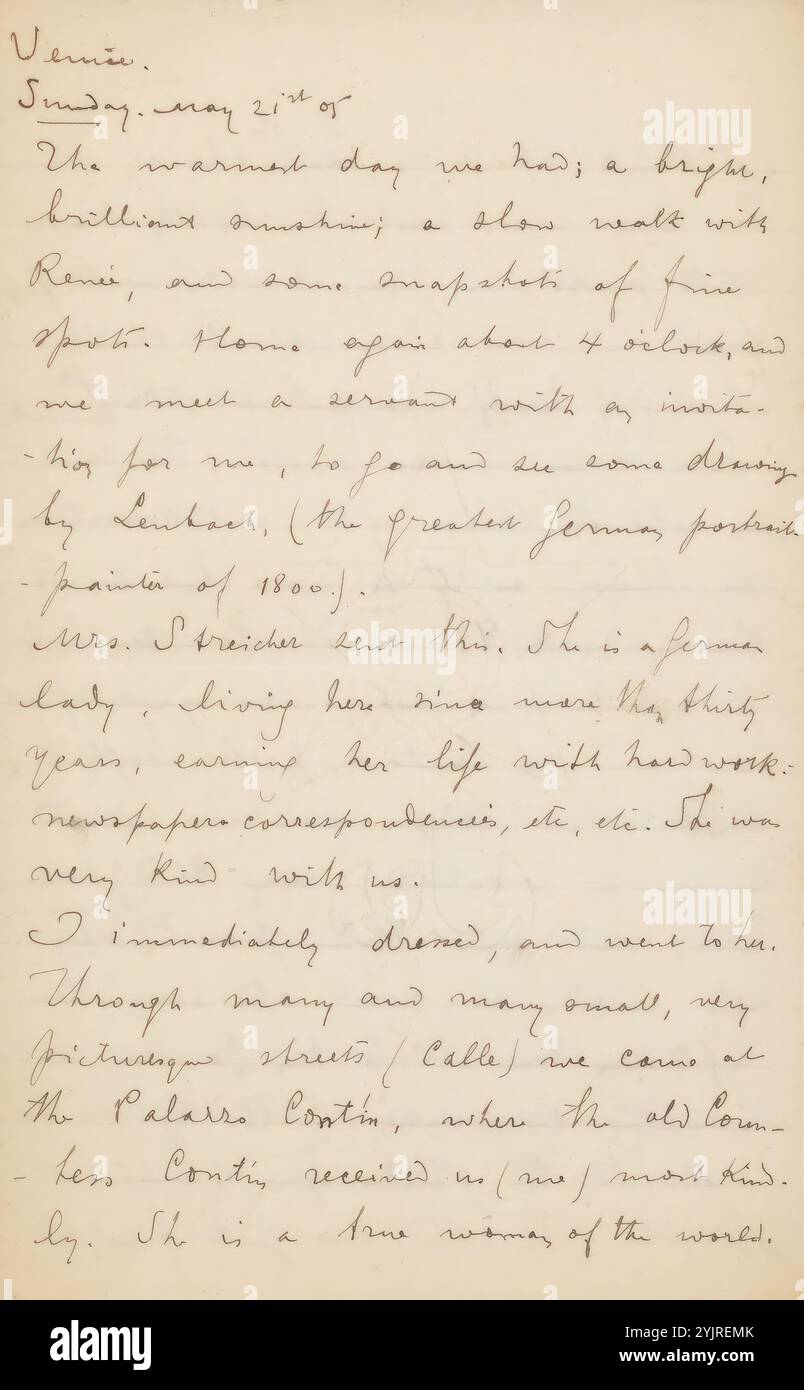 Venice.
Sunday. May 21st 05
The warmest day we had; a bright,
brilliant sunshine; a slow walk with
Renée, and some snapshots of fine
spots. Home again about 4 o'clock, and
we meet a servant with an invita-
-tion for me, to go and see some drawings
by Lenbach, (the greatest German portrait-
-painter of 1800.).
Mrs. Streicher sent this. She is a German
lady, living here since more than thirty
years, earning her life with hard work:
newspapers correspondencies, etc, etc. She was
very kind with us.
I immediately dressed, and went to her.
Through many and many small, very
picturesque streets (Calle) we came at
the Palazzo Contin, where the old Coun-
-tess Contin received us (me) most kind-
ly. She is a true woman of the world.
alamy
alamy
alamy
alamy
Image ID: 2YJREMK
www.alamy.com